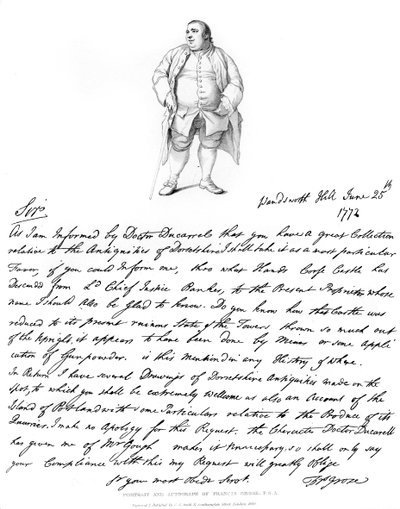 Wandsworth Hill June 25th
1772
Sir,
As I am Informed by Doctor Ducarrel that you have a great Collection
relative to the Antiquities of Dorsetshire I shall take it as a most particular
Favor, if you could Inform me, thro what Hands Corfe Castle has
Descended from Ld Chief Justice Bankes, to the Present Proprietor whose
name I should also be glad to know. Do you know how this Castle was
reduced to its present ruinous State of the Towers, thrown so much out
of the Upright, it appears to have been done by Mines or some Appli
cation of Gunpowder. is this mentioned in any History & where.
In Return I have several Drawings of Dorsetshire Antiquities made on the
spot, to which you shall be extremely welcome as also an Account of the
Island of Portland with some Particulars relative to the Produce of its
Quarries. I make no Apology for this Request. the Character Doctor Ducarell
has given me of Mr Gough makes it unnecessary, so shall only say
your Compliance with this my Request will greatly Oblige
Sr your most Obedt Servt.
Frs Grose
PORTRAIT AND AUTOGRAPH OF FRANCIS GROSE, F.S.A.